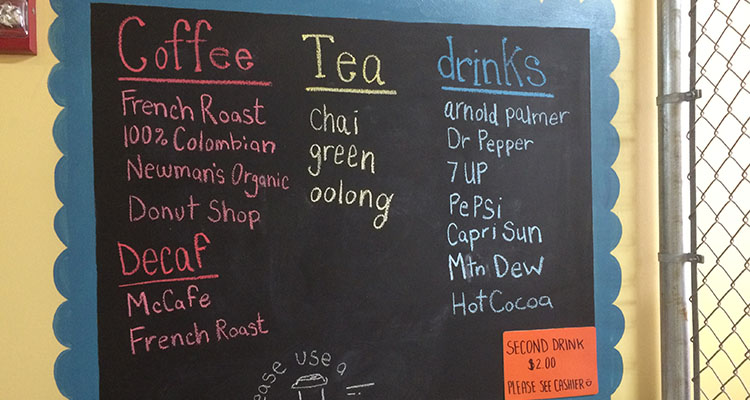 Coffee
French Roast
100% Colombian
Newman's Organic
Donut Shop
Decaf
McCafe
French Roast
Tea
chai
green
oolong
drinks
arnold palmer
Dr Pepper
7 UP
Pepsi
Capri Sun
Mtn Dew
Hot Cocoa
ease use a
SECOND DRINK
$2.00
PLEASE SEE CASHIER☺